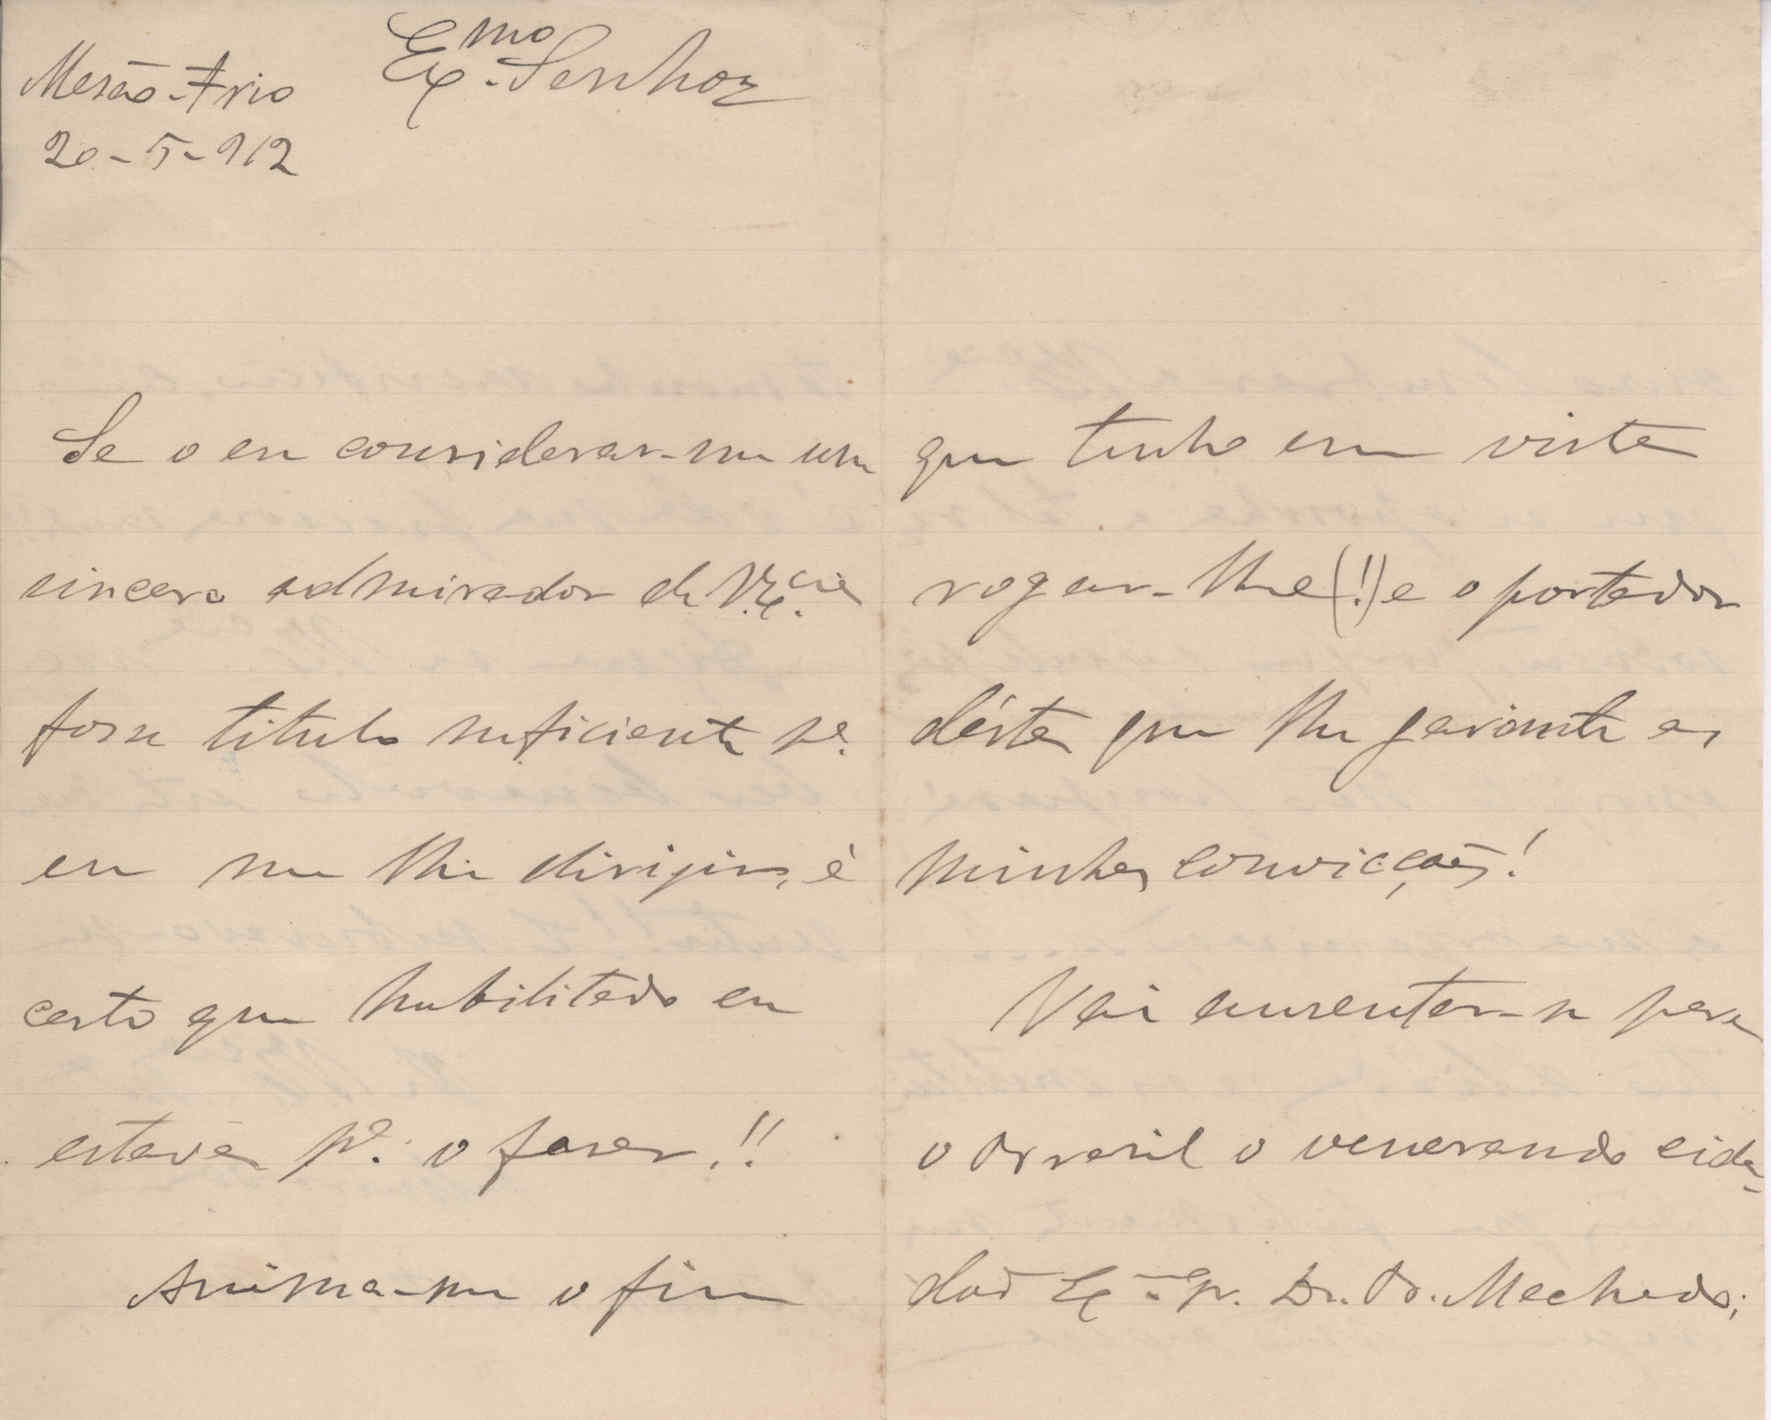 Mesão-Frio
20-5-912
Ex.mo Senhor
Se o eu considerar-me um
sincero admirador de V. Ex.cia
fosse titulo suficiente p.a
eu me lhe dirigir, é
certo que habilitado eu
estava p.a o faser!!
Anima-me o fim
que tenho em vista
rogar-lhe (!) e o portador
déste que lhe garante as
minhas convicções!
Vai ausentar-se para
o Brasil o venerando cida-
dão Ex.mo Sr. Dr. B. Machado;